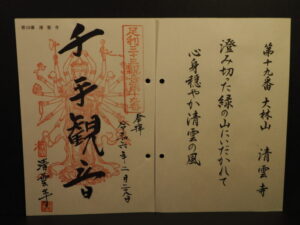 第十九番 大林山 清雲寺
澄み切た緑の山にいだかれて
心身穏やか清雲の風
奉拝
令和六年二月二九日
千手観音
清雲寺